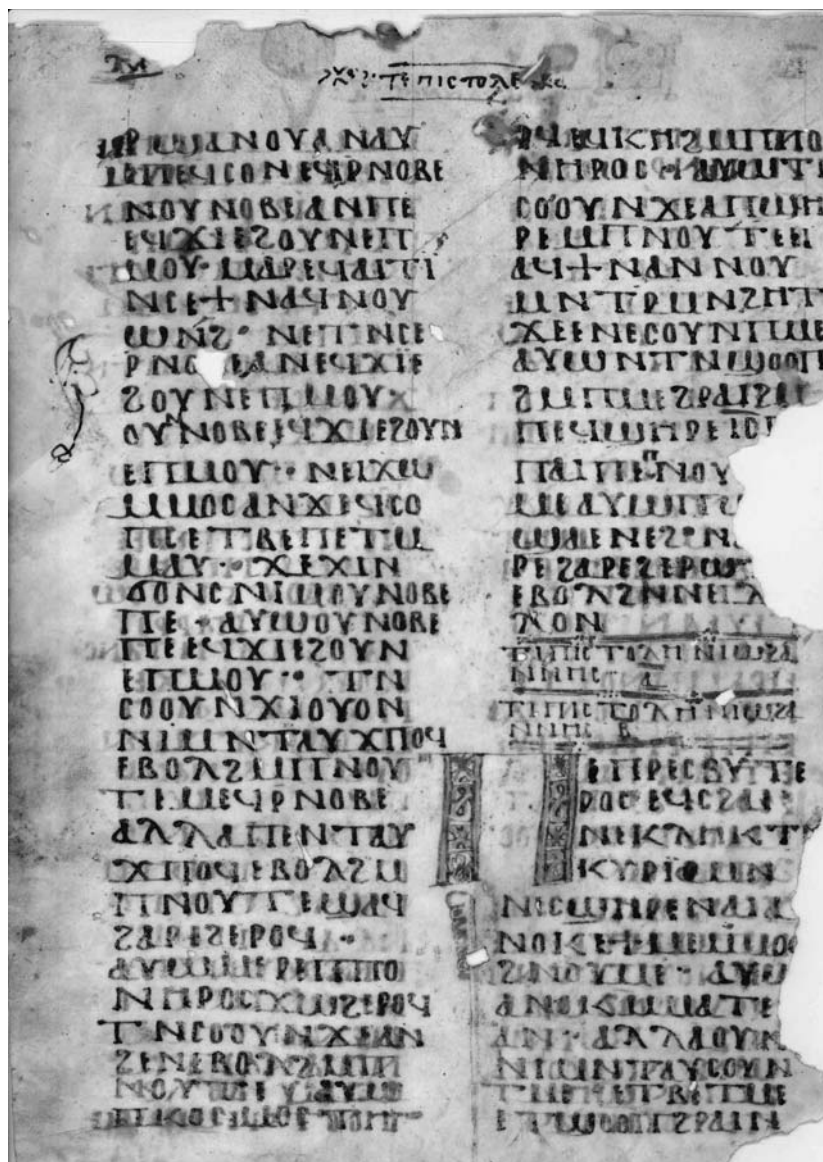 ⲉⲣϣⲁⲛⲟⲩⲁⲛⲁⲩ
ⲉⲡⲉϥⲥⲟⲛⲉϥⲣⲛⲟⲃⲉ
ⲛⲛⲟⲩⲛⲟⲃⲉⲁⲛⲡⲉ
ⲉϥϫⲓⲉϩⲟⲩⲛⲉⲡ
ⲙⲟⲩ·ⲙⲁⲣⲉϥⲁⲓⲧⲓ
ⲛⲥⲉϯⲛⲁϥⲛⲟⲩ
ⲱⲛϩ·ⲛⲉⲧⲛⲥⲉ
ⲣⲛⲟⲃⲉⲁⲛⲉϥϫⲓⲉ
ϩⲟⲩⲛⲉⲡⲙⲟⲩ
ⲟⲩⲛⲛⲟⲃⲉⲉϥϫⲓⲉϩⲟⲩⲛ
ⲉⲡⲙⲟⲩ·ⲛⲉⲓϫⲱ
ⲙⲙⲟⲥⲁⲛϫⲉϥⲥⲟ
ⲡⲥⲉⲧⲃⲉⲡⲉⲧⲙ
ⲙⲁⲩ·ϫⲉϫⲓⲛ
ϭⲟⲛⲥⲛⲓⲙⲟⲩⲛⲟⲃⲉ
ⲡⲉ·ⲁⲩⲱⲟⲩⲛⲟⲃⲉ
ⲡⲉⲉϥϫⲓⲉϩⲟⲩⲛ
ⲉⲡⲙⲟⲩ·ⲧⲛ
ⲥⲟⲟⲩⲛϫⲓⲟⲩⲟⲛ
ⲛⲓⲙⲛⲧⲁⲩϫⲡⲟϥ
ⲉⲃⲟⲗϩⲙⲡⲛⲟⲩ
ⲧⲉⲙⲉϥⲣⲛⲟⲃⲉ
ⲁⲗⲗⲁⲡⲉⲛⲧⲁⲩ
ϫⲡⲟϥⲉⲃⲟⲗϩⲙ
ⲡⲛⲟⲩⲧⲉϣⲁϥ
ϩⲁⲣⲉϩⲉⲣⲟϥ·
ⲁⲩⲱⲙⲉⲣⲉⲡⲡⲟ
ⲛⲏⲣⲟⲥϫⲱϩⲉⲣⲟϥ
ⲧⲛⲥⲟⲟⲩⲛϫⲉⲁⲛ
ϩⲉⲛⲉⲃⲟⲗϩⲙⲡ
ⲛⲟⲩⲧⲉ ⲁⲩⲱ
ϥⲕⲏϩⲙⲡⲡⲟ
ⲛⲏⲣⲟⲥ·ⲁⲩⲱⲧ
ⲥⲟⲟⲩⲛϫⲉⲁⲡϣⲏ
ⲣⲉⲙⲡⲛⲟⲩⲧⲉⲉⲓ
ⲁϥϯⲛⲁⲛⲛⲟⲩ
ⲙⲛⲧⲣⲙⲛϩⲏⲧ
ϫⲉⲉⲛⲉⲥⲟⲩⲛⲧⲙⲉ
ⲁⲩⲱⲛⲧⲛϣⲟⲟⲡ
ϩⲙⲡⲙⲉϩⲣⲁⲓϩⲙ
ⲡⲉϥϣⲏⲣⲉⲓⲥ
ⲡⲁⲓⲡⲉⲡⲛⲟⲩ
ⲙⲉⲁⲩⲱⲡ
ϣⲁⲉⲛⲉϩ·ⲛ
ⲣⲉϩⲁⲣⲉϩⲉⲣⲱ
ⲉⲃⲟⲗϩⲛⲛⲉⲓ
ⲗⲟⲛ
ⲧⲉⲡⲓⲥⲧⲟⲗⲏⲛⲓⲱϩⲁ
ⲛⲛⲏⲥ ⲁ
ⲧⲉⲡⲓⲥⲧⲟⲗⲏⲛⲓⲱϩⲁ
ⲛⲛⲏⲥ ⲃ
ⲡⲉⲡⲣⲉⲥⲃⲩⲧⲉ
ⲣⲟⲥⲉϥⲥϩⲁⲓ
ⲛⲉⲕⲗⲉⲕⲧ
ⲕⲩⲣⲓⲁⲙⲛ
ⲛⲉⲥϣⲏⲣⲉⲛⲁⲓⲁ
ⲛⲟⲕⲉϯⲙⲉⲙⲙⲟ
ϩⲛⲟⲩⲙⲉ·ⲁⲩⲱ
ⲁⲛⲟⲕⲙⲙⲁⲧⲉ
ⲁⲛ·ⲁⲗⲗⲁⲟⲩⲛ
ⲛⲓⲙⲛⲧⲁⲩⲥⲟⲩⲛ
ⲧⲙⲉ ⲉⲧⲃⲉⲧⲙⲉ
ⲉⲧϣⲟⲟⲡϩⲣⲁⲓⲛ